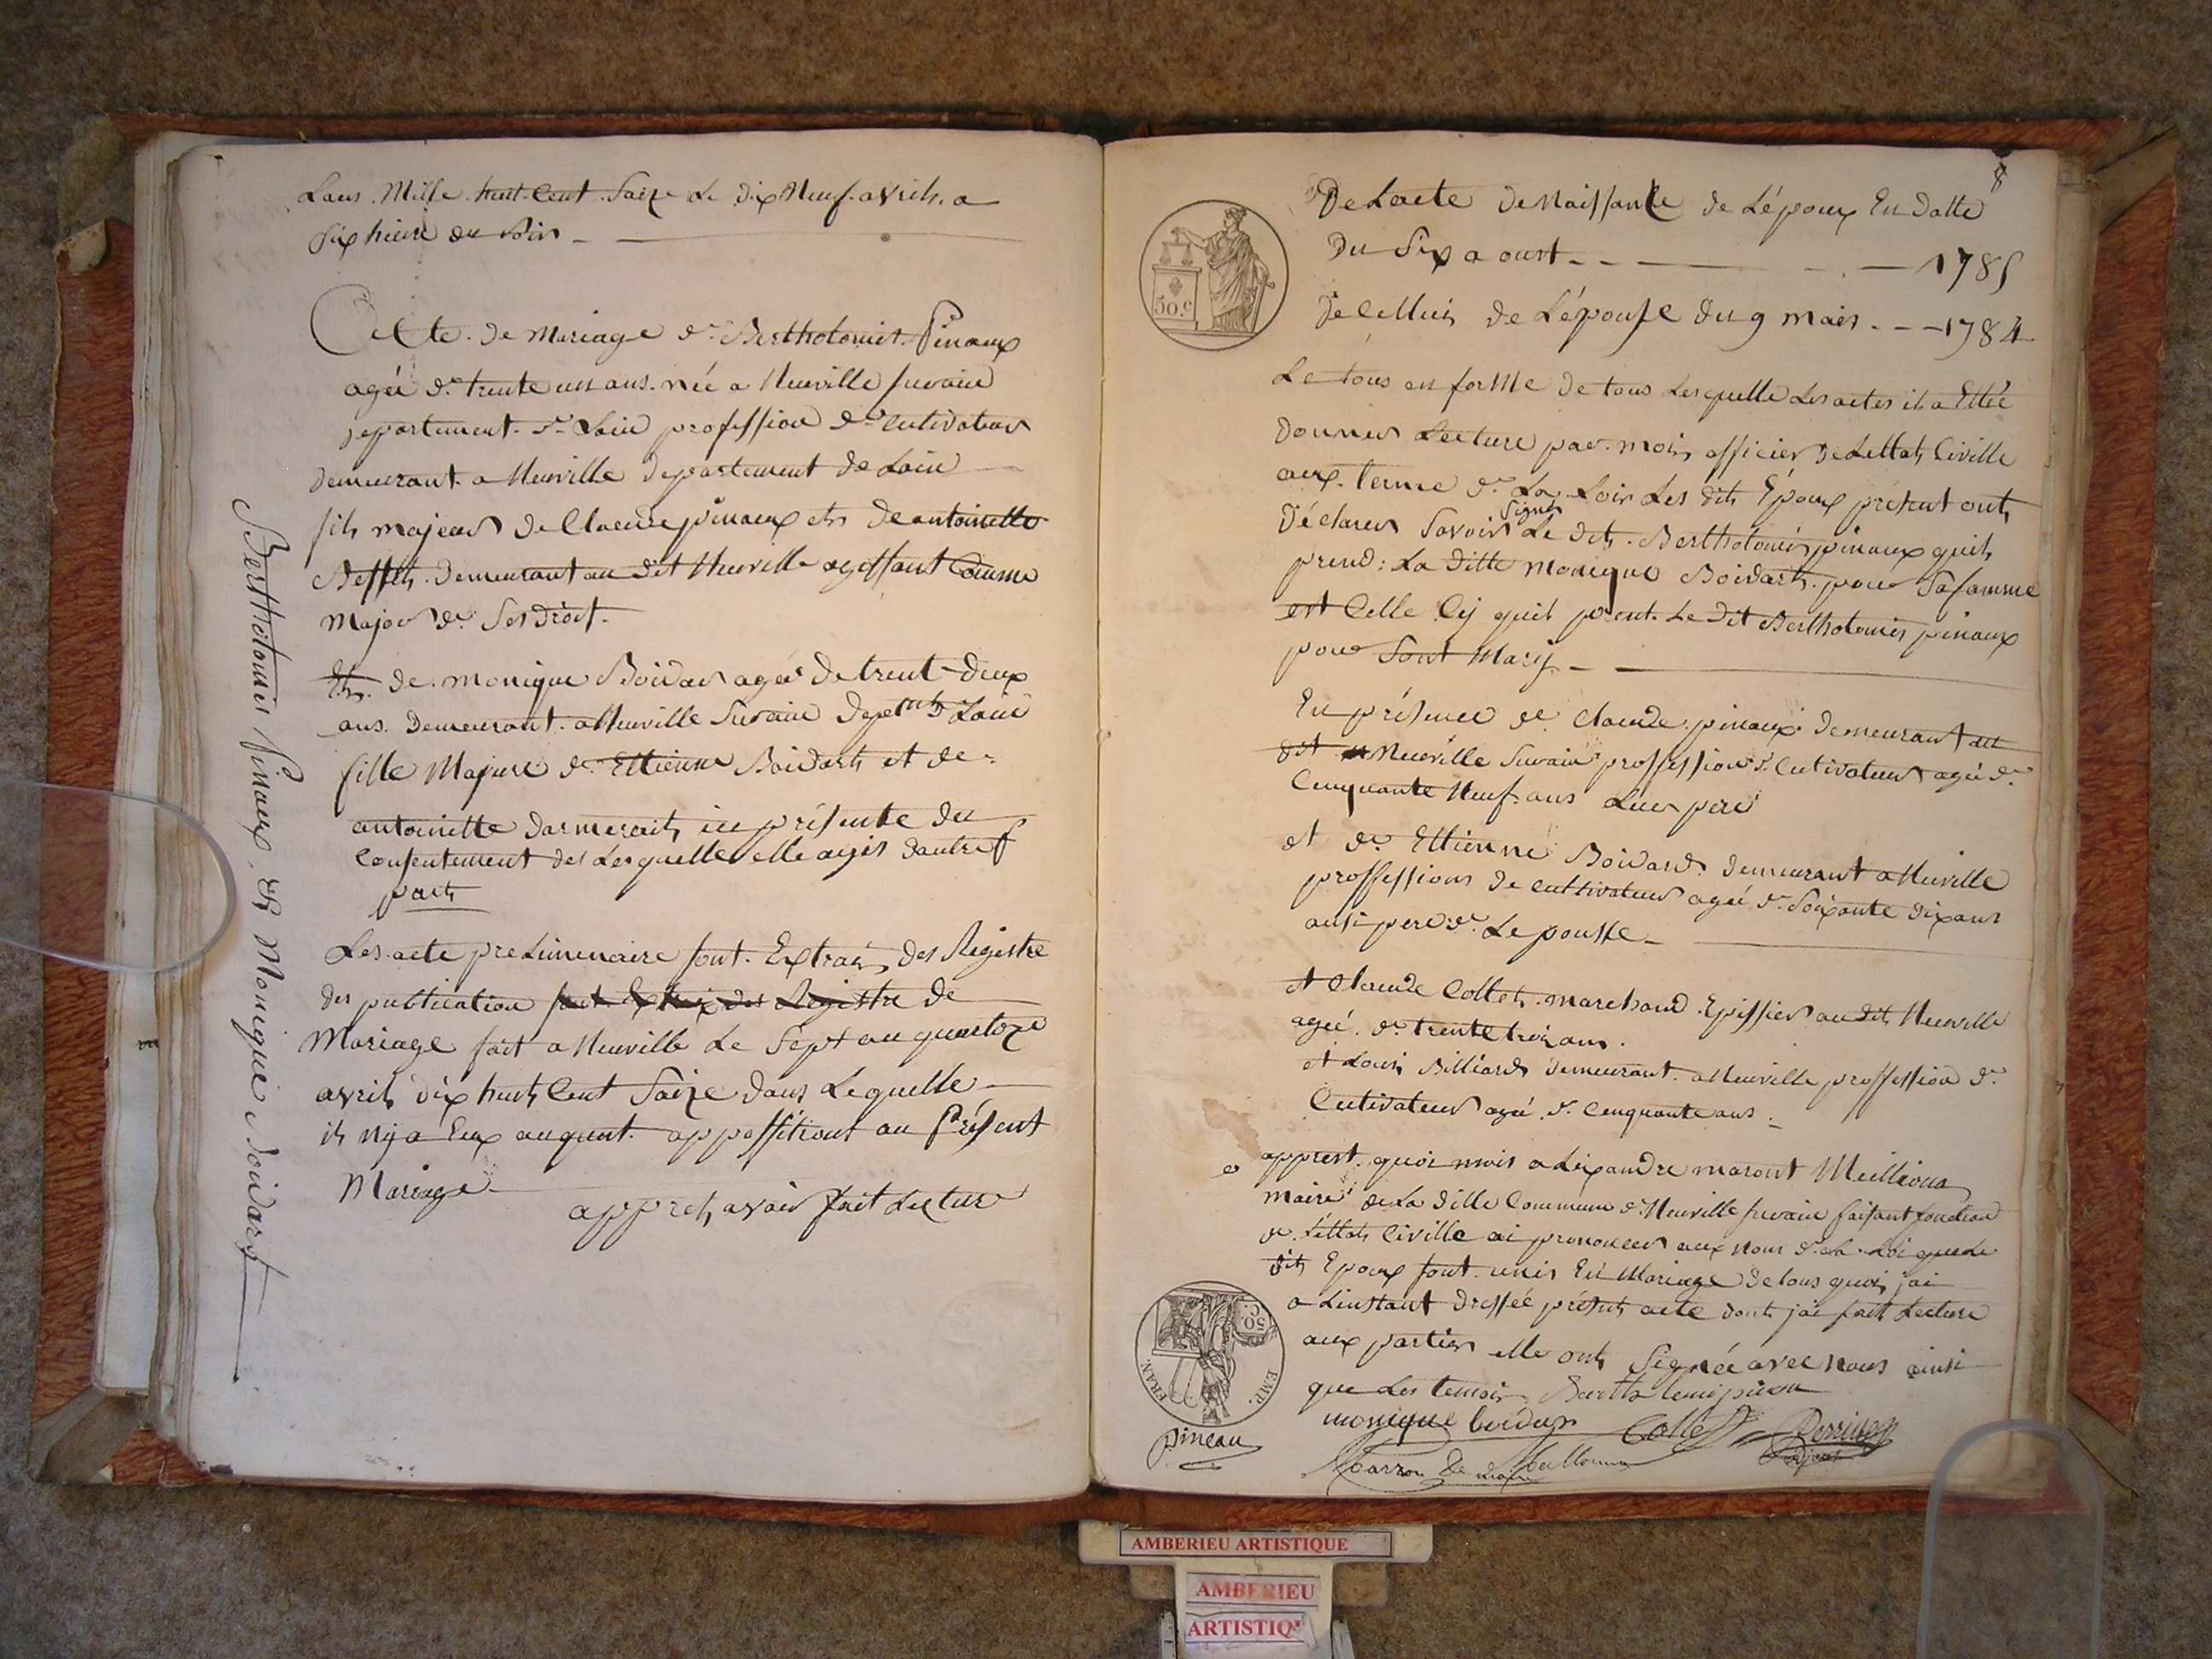 Lans Mille huit Cent Saize Le dix Neuf avrils a
six hieure du Soirs
Acte de Mariage de Bertholomiet Pinaux
agée de trente un ans née a Neuville surain
departement de Lain profession de cutivateur
demeurant a Neuville departement de Lain
fils majeur de Claude pinaux et de antoinette
demeurant au dit Neuville agissant Comme
Major de Ses droit
Et de monique Boidar ageé de trent deux
ans demeurant a Neuville Surain de Lain
fille Majure de Ettienne Boidart et de
antoinette en présente du
Consentement des Lesquelle elle agis dautres
part
Les acte preLimenaire sont Extrais des Registre
des publication sont des Registre de
Mariage fait a Neuville Le Sept au quatoze
avril dix huit Cent Saize dans Lequelle
il ny a Eux auqunt appossitiont au Présent
Mariage
appret avoir fait Lecture
Bertholomiet Pinaux et Monique Boidart
8
De Lacte de Naissance de Lépoux En datte
du Six aoust 1785
de celluis de Lépouse du 9 mars 1784
50.c
Le tous en forme de tous Lesquelle Les actes il a Ettée
donner Lecture par mois officier de Lettat Civille
aux terme de La Loix Les dits Époux présent ont
déclarer Savoir Signer Le dit Bertholomier pinaux quils
prend La ditte monique Boidart pour Sa famme
est Celle Cy quil prent Le dit Bertholomier pinaux
pour Sont Mary
En présence de claude pinaux demeurant au
dit Neuville Surain proffession de Cutivateur agée de
Cinquante Neuf ans pere
et de Ettienne Boidard demeurant a Neuville
proffessions de cultivateur ageé de Soixante dix ans
ausi pere de Lepousse
et Claude Collet marchand Epissier au dit Neuville
ageé de trente trois ans
et Louis Billiard demeurant a Neuville proffession de
Cutivateur agée de Cinquante ans
apprest quoi mois aLixandre maront Meilliona
maire de La ditte Commune de Neuville surain faisant fonction
de Lettat Civille ai prononcer aux nom de La Loi que Le
dit Epoux sont unis En Mariage de tous quoi jai
a Linstant dressée présent acte dont jai fait Lecture
aux parties elle ont Signée avec nous ainsi
que Les temoin
monique boidar Collet
pineau
FRAN. EMP. 50 C.
AMBERIEU ARTISTIQUE
AMBERIEU
ARTISTIQ